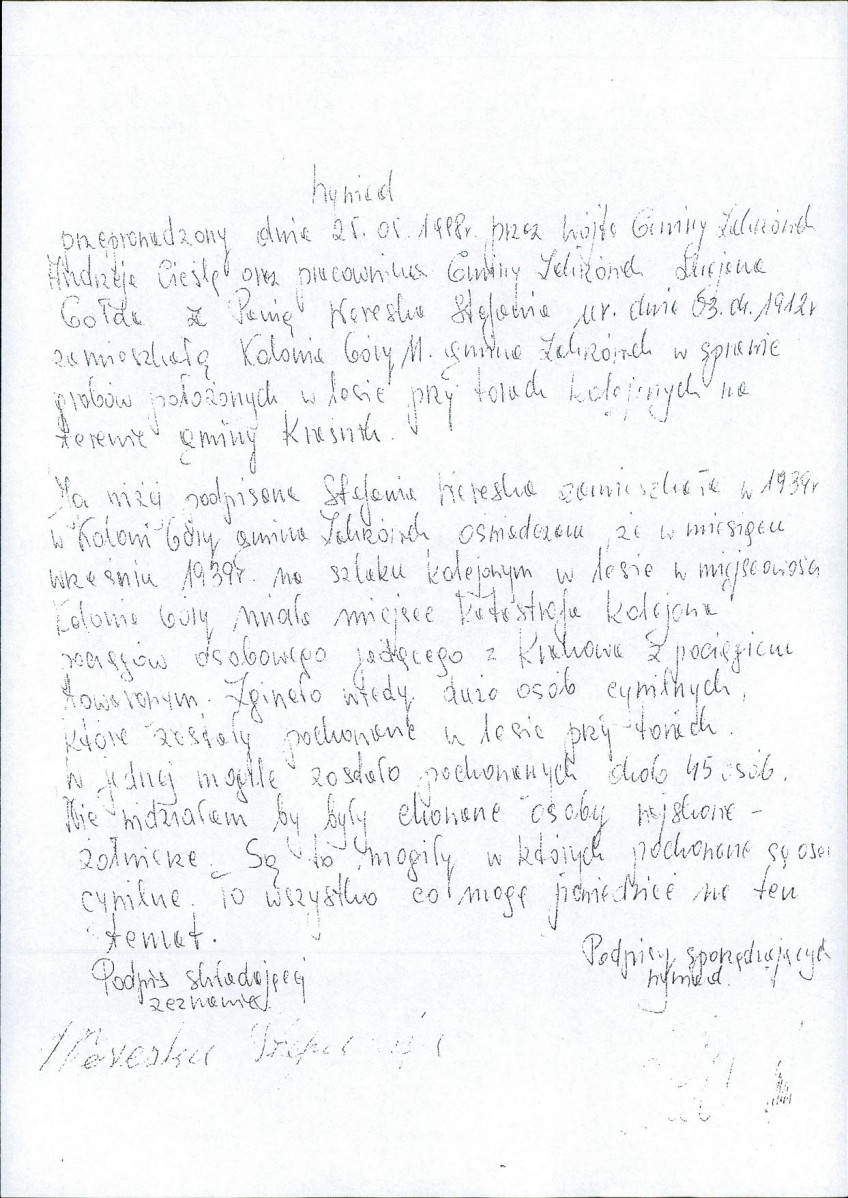 Wywiad
przeprowadzony dnia 25.05.1998r. przez Wójta Gminy Zakrzówek
Andrzeja Cieślę oraz pracownika Gminy Zakrzówek Lucjana
Gołda z Panią Wereska Stefania ur. dnia 03.01.1912r
zamieszkałą Kolonia Góry M. gmina Zakrzówek w sprawie
grobów położonych w lesie przy torach kolejowych na
terenie gminy Kraśnik.
Ja niżej podpisana Stefania Wereska zamieszkała w 1939r
w Koloni Góry gmina Zakrzówek oświadczam, że w miesiącu
wrześniu 1939r. na szlaku kolejowym w lesie w miejscowości
Kolonia Góry miała miejsce katastrofa kolejowa
pociągów osobowego jadącego z Krakowa z pociągiem
towarowym. Zginęło wtedy dużo osób cywilnych,
które zostały pochowane w lesie przy torach.
W jednej mogile zostało pochowanych około 45 osób.
Nie widziałam by były chowane osoby wojskowe -
żołnierze. Są to mogiły w których pochowane są oso
cywilne. To wszystko co mogę powiedzieć na ten
temat.
Podpis składającej
zeznanie
Podpisy sporządzających
wywiad.
Wereska Stefania